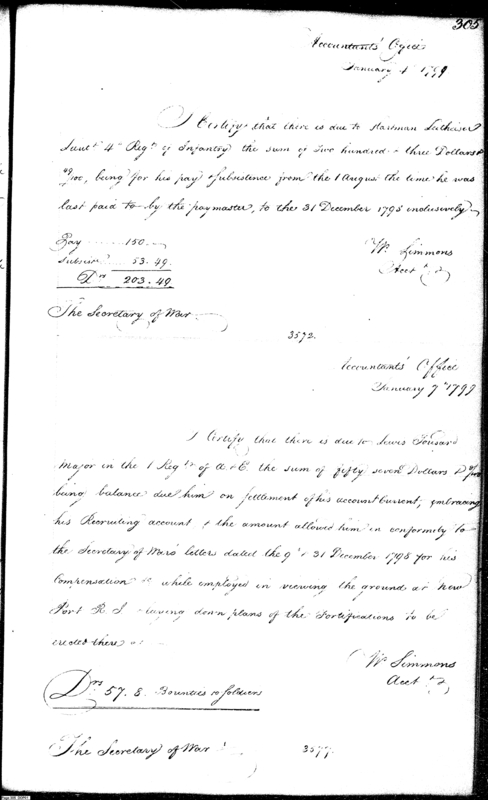 305
Accountants' Office
January 4th 1799
I Certify that there is due to Hartman Leitheiser
Lieut 4th Regt of Infantry the sum of Two hundred & three Dollars &
49/100, being for his pay & subsistence from the 1 August the time he was
last paid to by the paymaster, to the 31 December 1798 inclusively
Pay 150
Subsise 53.49
Drs 203.49
Wm Simmons
Acct
The Secretary of War
3572.
Accountants' Office
January 7th 1799
I Certify that there is due to Lewis Tousard
Major in the 1 Regt of A & E the sum of fifty seven Dollars &
being balance due him on settlement of his account Current, embracing
his Recruiting account & the amount allowed him in conformity to
the Secretary of Wars letters dated the 9 & 31 December 1798 for his
Compensation &c while employed in viewing the ground at New
Port R. I. & laying down plans of the Fortifications to be
erected there
Wm Simmons
Acct
Drs 57.8 Bounties to Soldiers
The Secretary of War
3577.